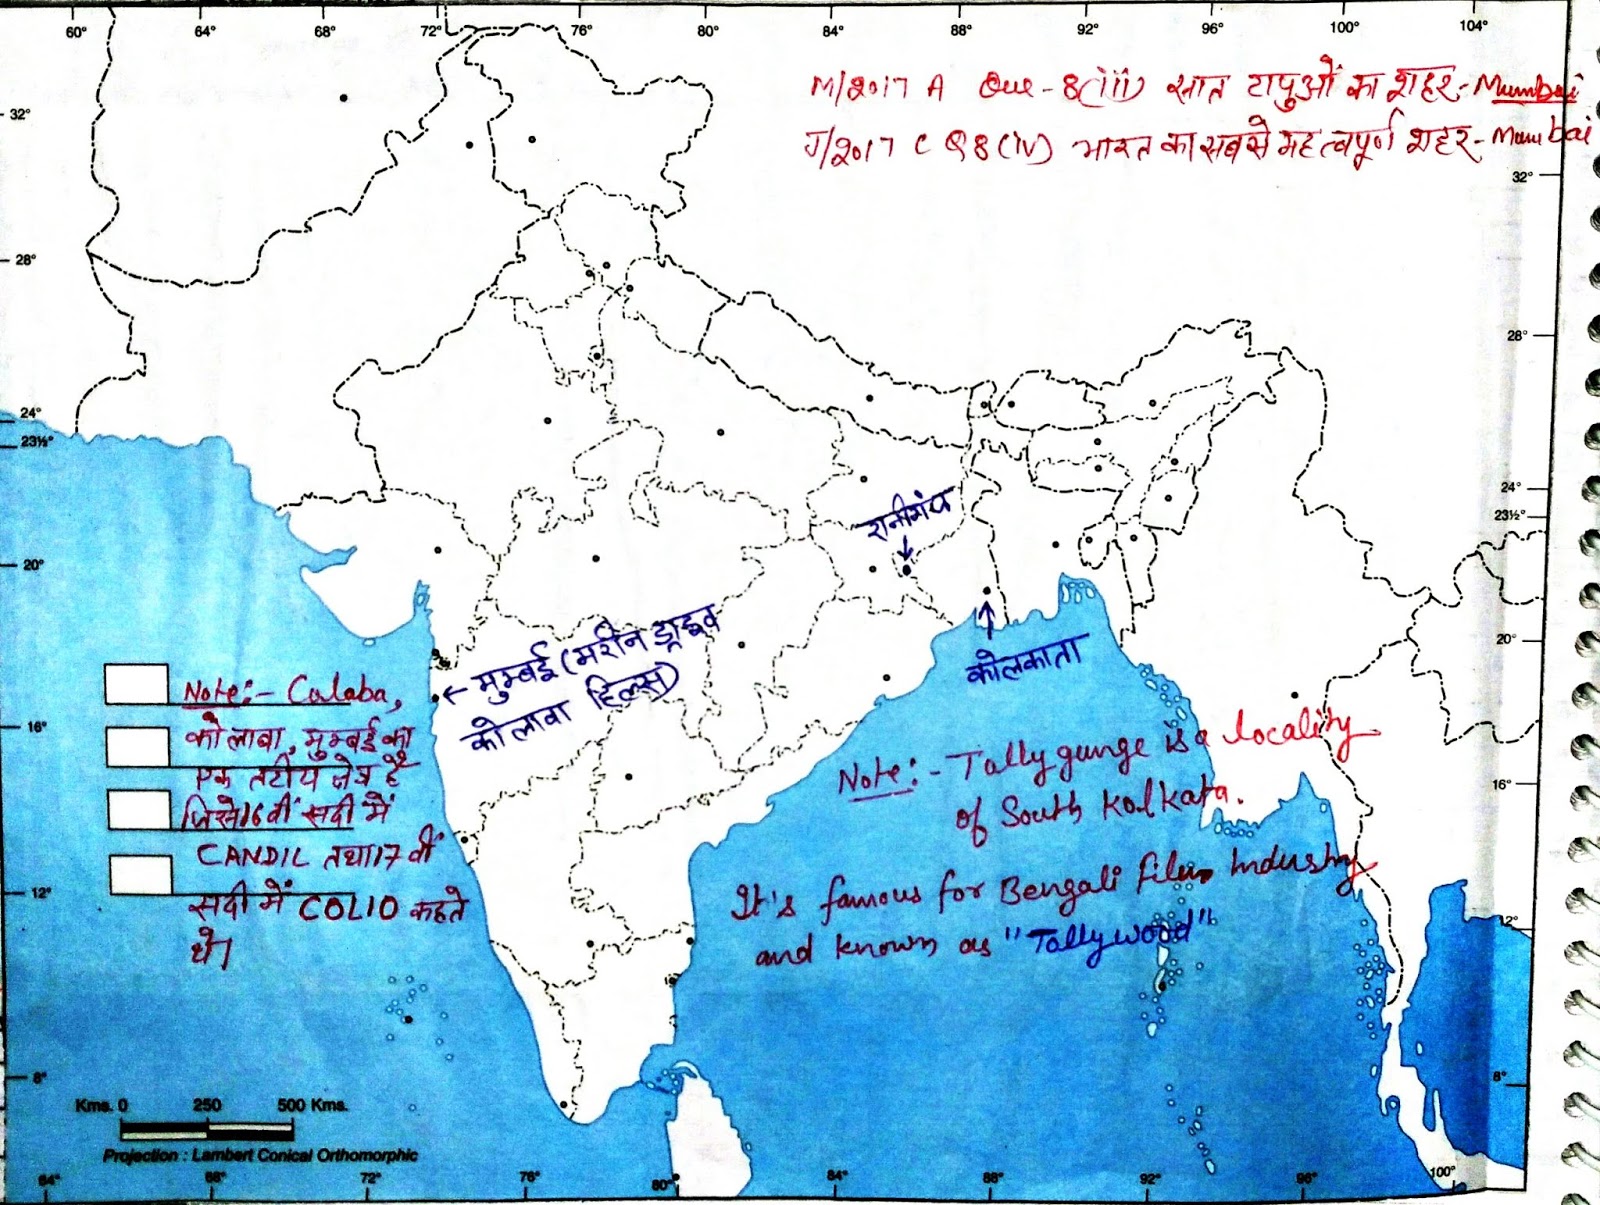 60° 64° 68° 72° 76° 80° 84° 88° 92° 96° 100° 104°
M/2017 A Que-8(iii) सात टापुओं का शहर-Mumbai
J/2017 C Q8(iv) भारत का सबसे महत्वपूर्ण शहर-Mumbai
32°
32°
28°
28°
24°
23½°
24°
23½°
रानीगंज
20°
20°
← मुम्बई (मरीन ड्राइव
कोलाबा हिल्स)
कोलकाता
16°
16°
Note:- Colaba,
कोलाबा, मुम्बई का
एक तटीय क्षेत्र है
जिसे 16वीं सदी में
CANDIL तथा 17 वीं
सदी में COLIO कहते
थे।
Note:- Tally gunge is a locality
of South Kolkata.
It's famous for Bengali film Industry
and known as "Tally wood"
12°
12°
8°
8°
Kms. 0 250 500 Kms.
Projection : Lambert Conical Orthomorphic
64° 68° 72° 76° 80° 84° 88° 92° 96° 100°